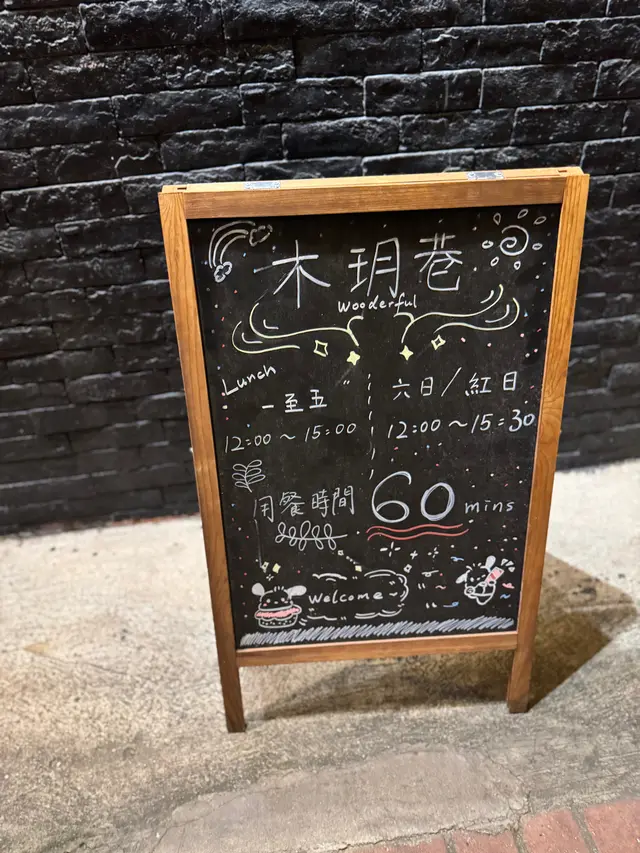 木玥巷
Wooderful
Lunch
一至五
12:00～15:00
六日/紅日
12:00～15:30
用餐時間 60 mins
Welcome